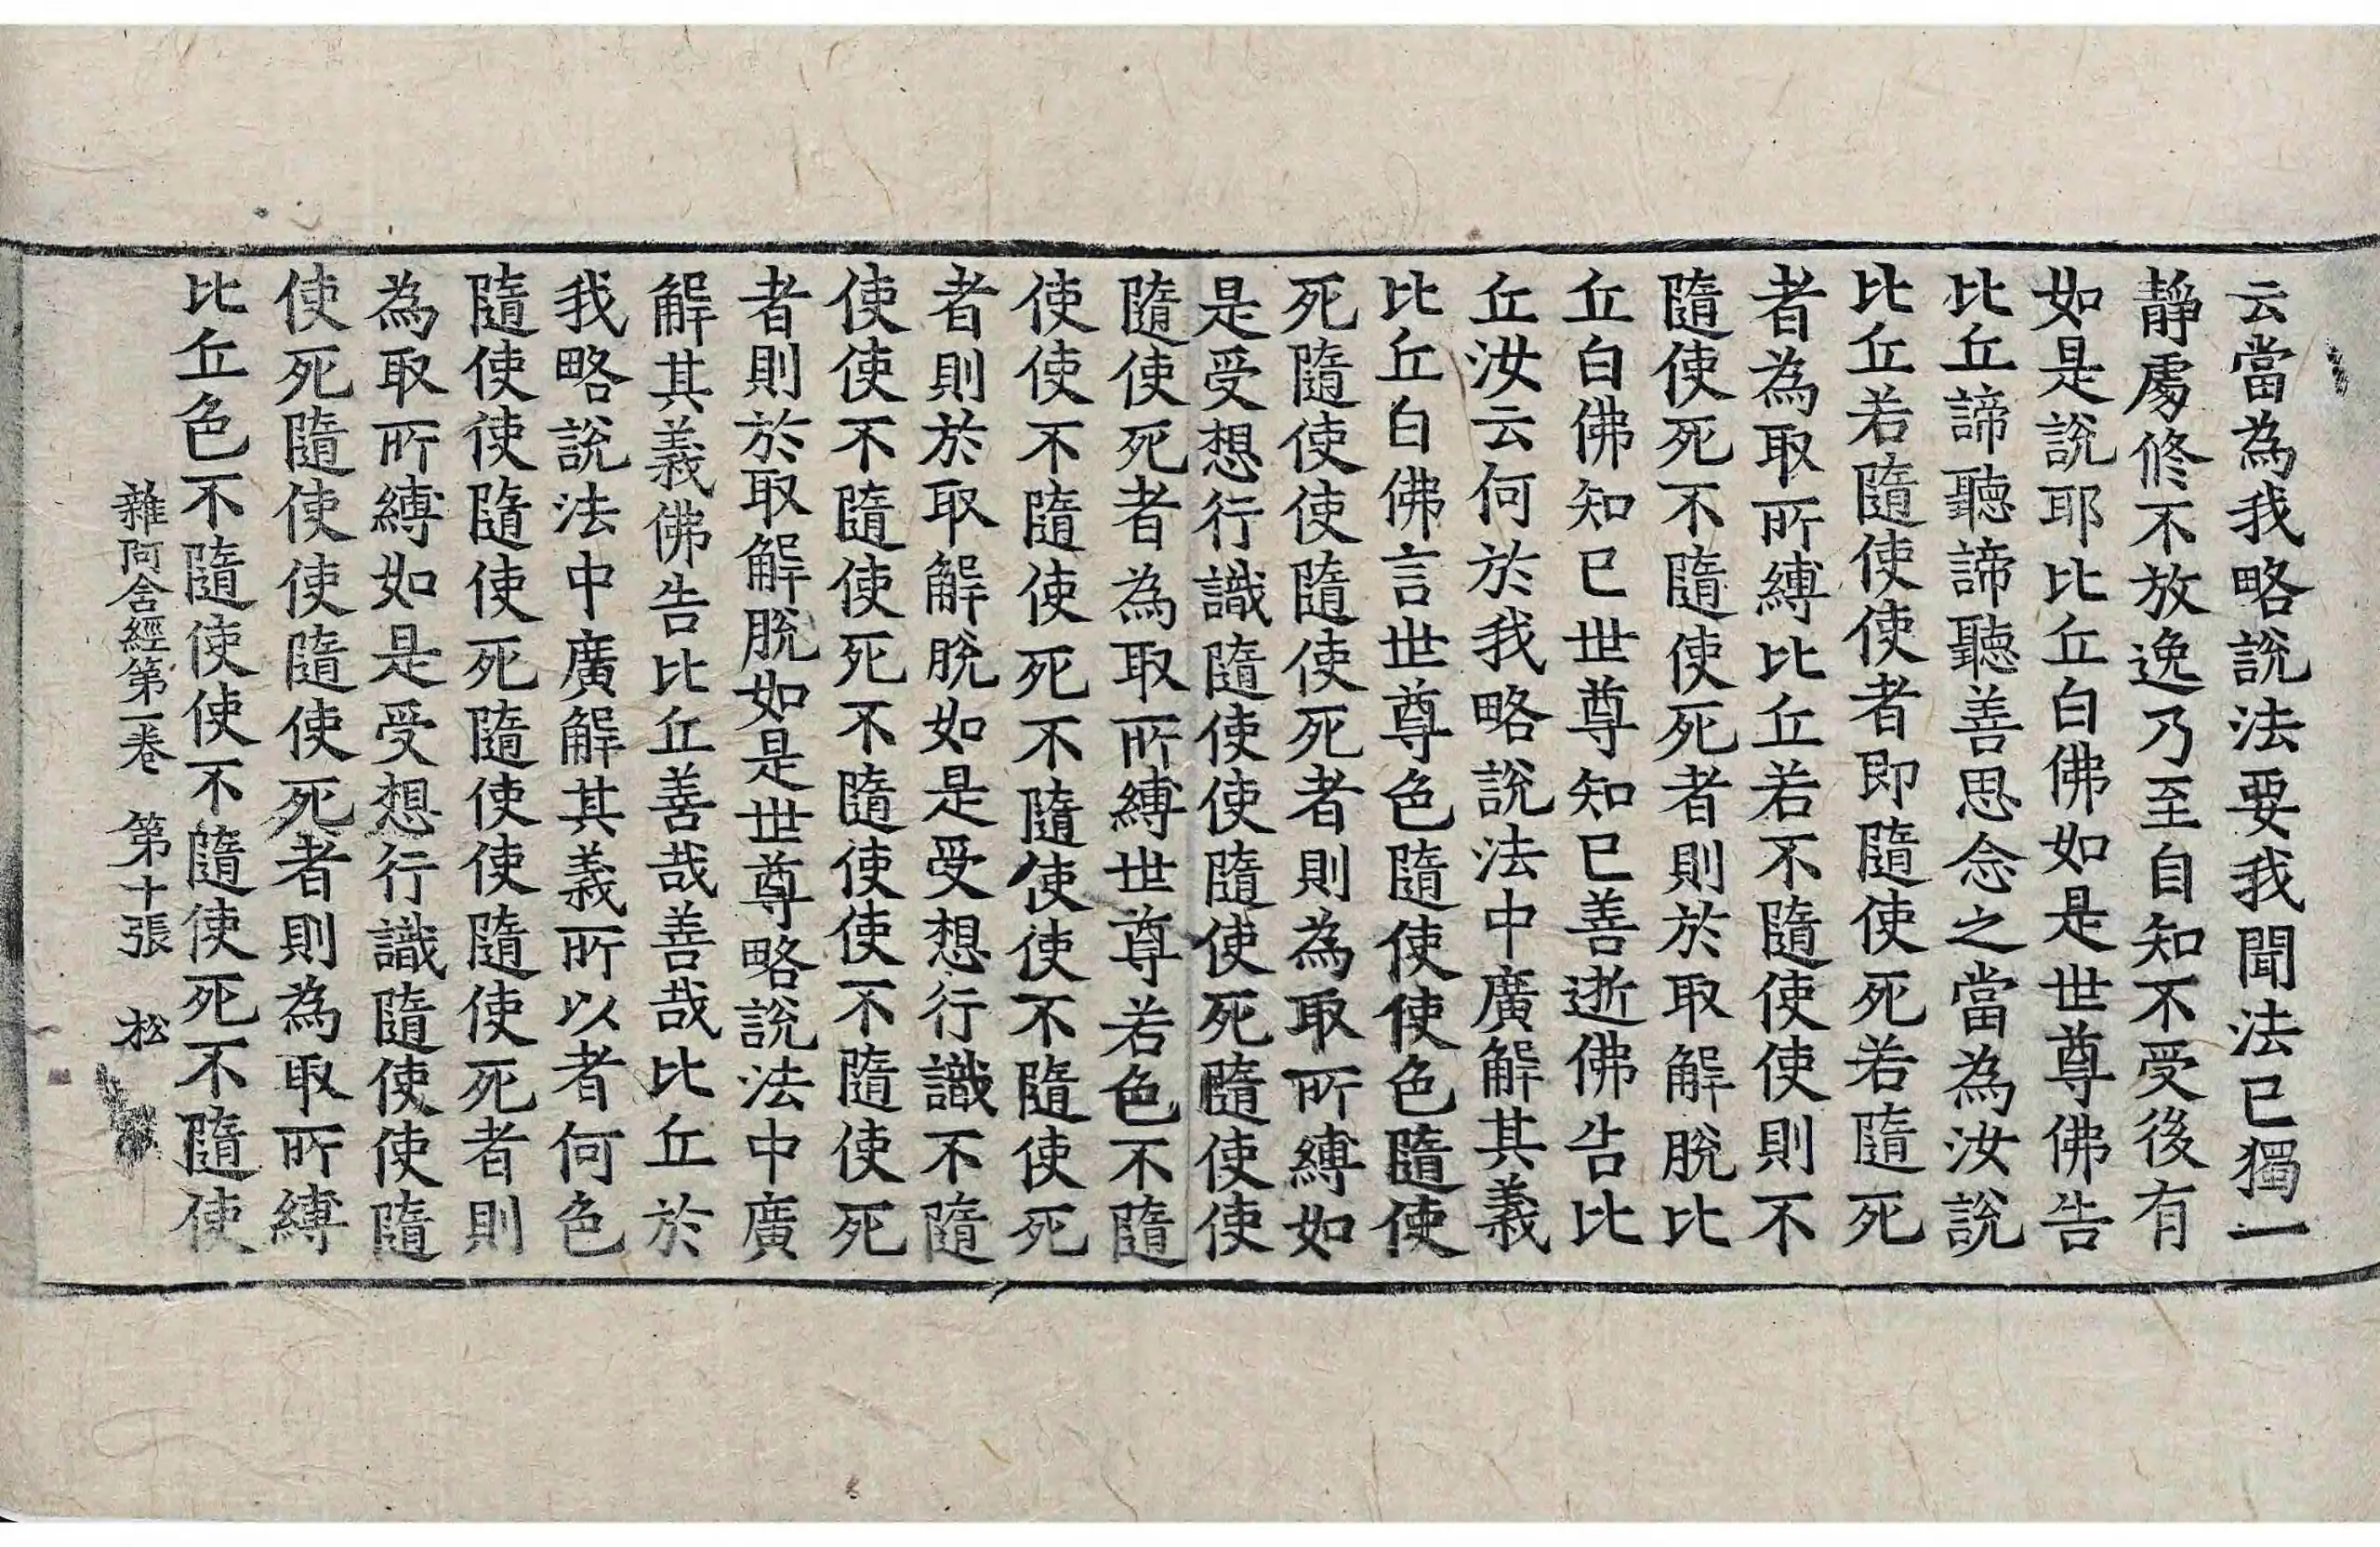 云當為我略說法要我聞法已獨一
靜處修不放逸乃至自知不受後有
如是說耶比丘白佛如是世尊佛告
比丘諦聽諦聽善思念之當為汝說
比丘若隨使使者即隨使死若隨死
者為取所縛比丘若不隨使使則不
隨使死不隨使死者則於取解脫比
丘白佛知已世尊知已善逝佛告比
丘汝云何於我略說法中廣解其義
比丘白佛言世尊色隨使使色隨使
死隨使使隨使死者則為取所縛如
是受想行識隨使使隨使死隨使使
隨使死者為取所縛世尊若色不隨
使使不隨使死不隨使使不隨使死
者則於取解脫如是受想行識不隨
使使不隨使死不隨使使不隨使死
者則於取解脫如是世尊略說法中廣
解其義佛告比丘善哉善哉比丘於
我略說法中廣解其義所以者何色
隨使使隨使死隨使使隨使死者則
為取所縛如是受想行識隨使使隨
使死隨使使隨使死者則為取所縛
比丘色不隨使使不隨使死不隨使
雜阿含經第一卷 第十張 松